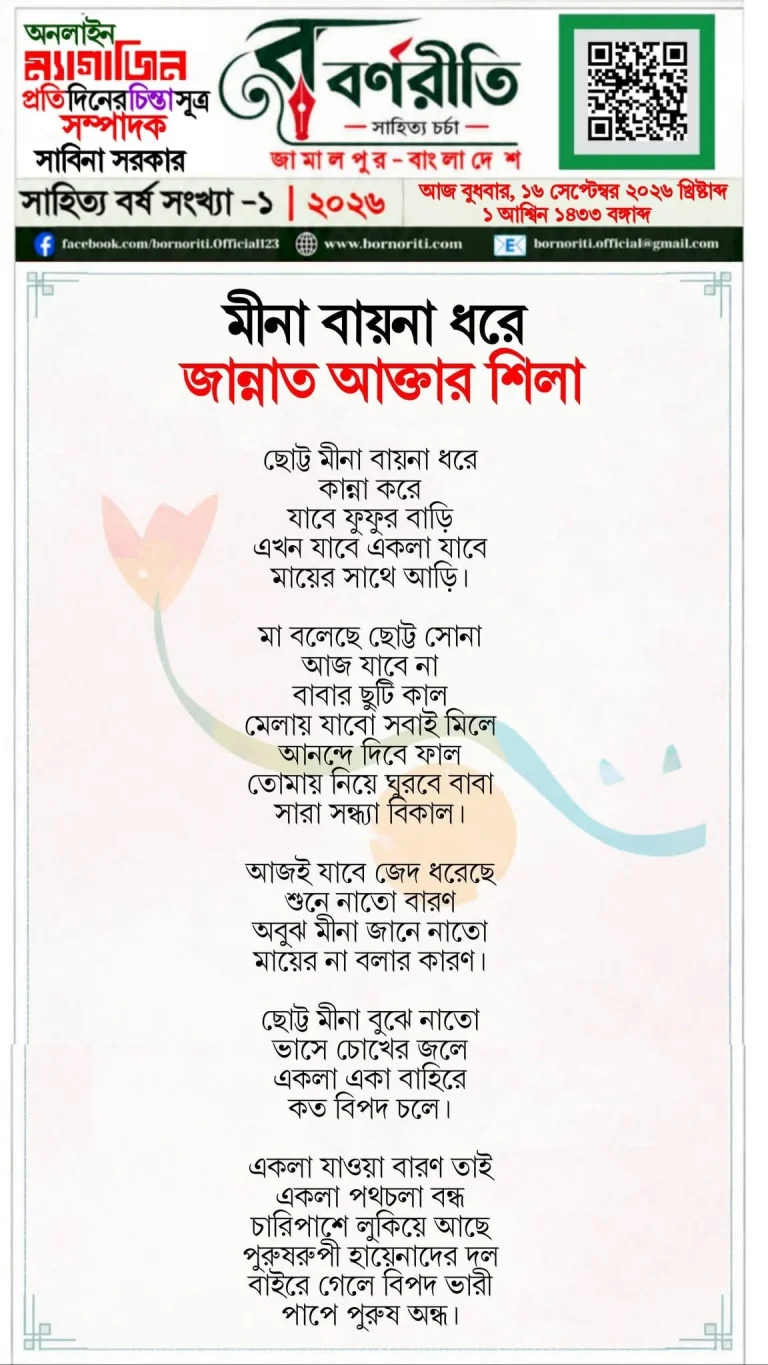 অনলাইন
ম্যাগাজিন
প্রতিদিনের চিন্তা সূত্র
সম্পাদক
সাবিনা সরকার
বর্ণরীতি
— সাহিত্য চর্চা —
জামালপুর-বাংলাদেশ
সাহিত্য বর্ষ সংখ্যা -১ | ২০২৬
আজ বুধবার, ১৬ সেপ্টেম্বর ২০২৬ খ্রিষ্টাব্দ
১ আশ্বিন ১৪৩৩ বঙ্গাব্দ
facebook.com/bornoriti.Official123
www.bornoriti.com
bornoriti.official@gmail.com
মীনা বায়না ধরে
জান্নাত আক্তার শিলা
ছোট্ট মীনা বায়না ধরে
কান্না করে
যাবে ফুফুর বাড়ি
এখন যাবে একলা যাবে
মায়ের সাথে আড়ি।
মা বলেছে ছোট্ট সোনা
আজ যাবে না
বাবার ছুটি কাল
মেলায় যাবো সবাই মিলে
আনন্দে দিবে ফাল
তোমায় নিয়ে ঘুরবে বাবা
সারা সন্ধ্যা বিকাল।
আজই যাবে জেদ ধরেছে
শুনে নাতো বারণ
অবুঝ মীনা জানে নাতো
মায়ের না বলার কারণ।
ছোট্ট মীনা বুঝে নাতো
ভাসে চোখের জলে
একলা একা বাহিরে
কত বিপদ চলে।
একলা যাওয়া বারণ তাই
একলা পথচলা বন্ধ
চারিপাশে লুকিয়ে আছে
পুরুষরুপী হায়েনাদের দল
বাইরে গেলে বিপদ ভারী
পাপে পুরুষ অন্ধ।